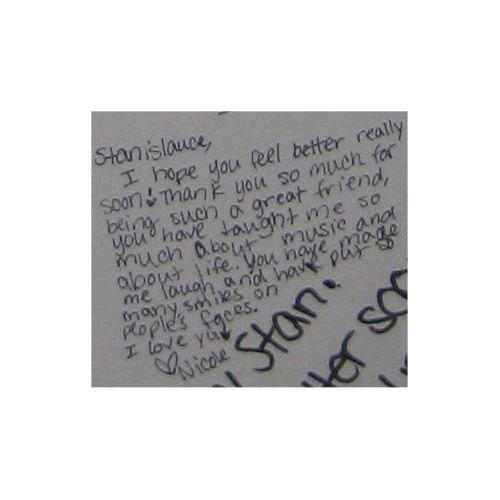 Stanislauce,
I hope you feel better really
soon! Thank you so much for
being such a great friend,
you have taught me so
much about music and
about life. You have made
me laugh and have put so
many smiles on
people's faces.
I love you!
♡ Nicole
Stan!